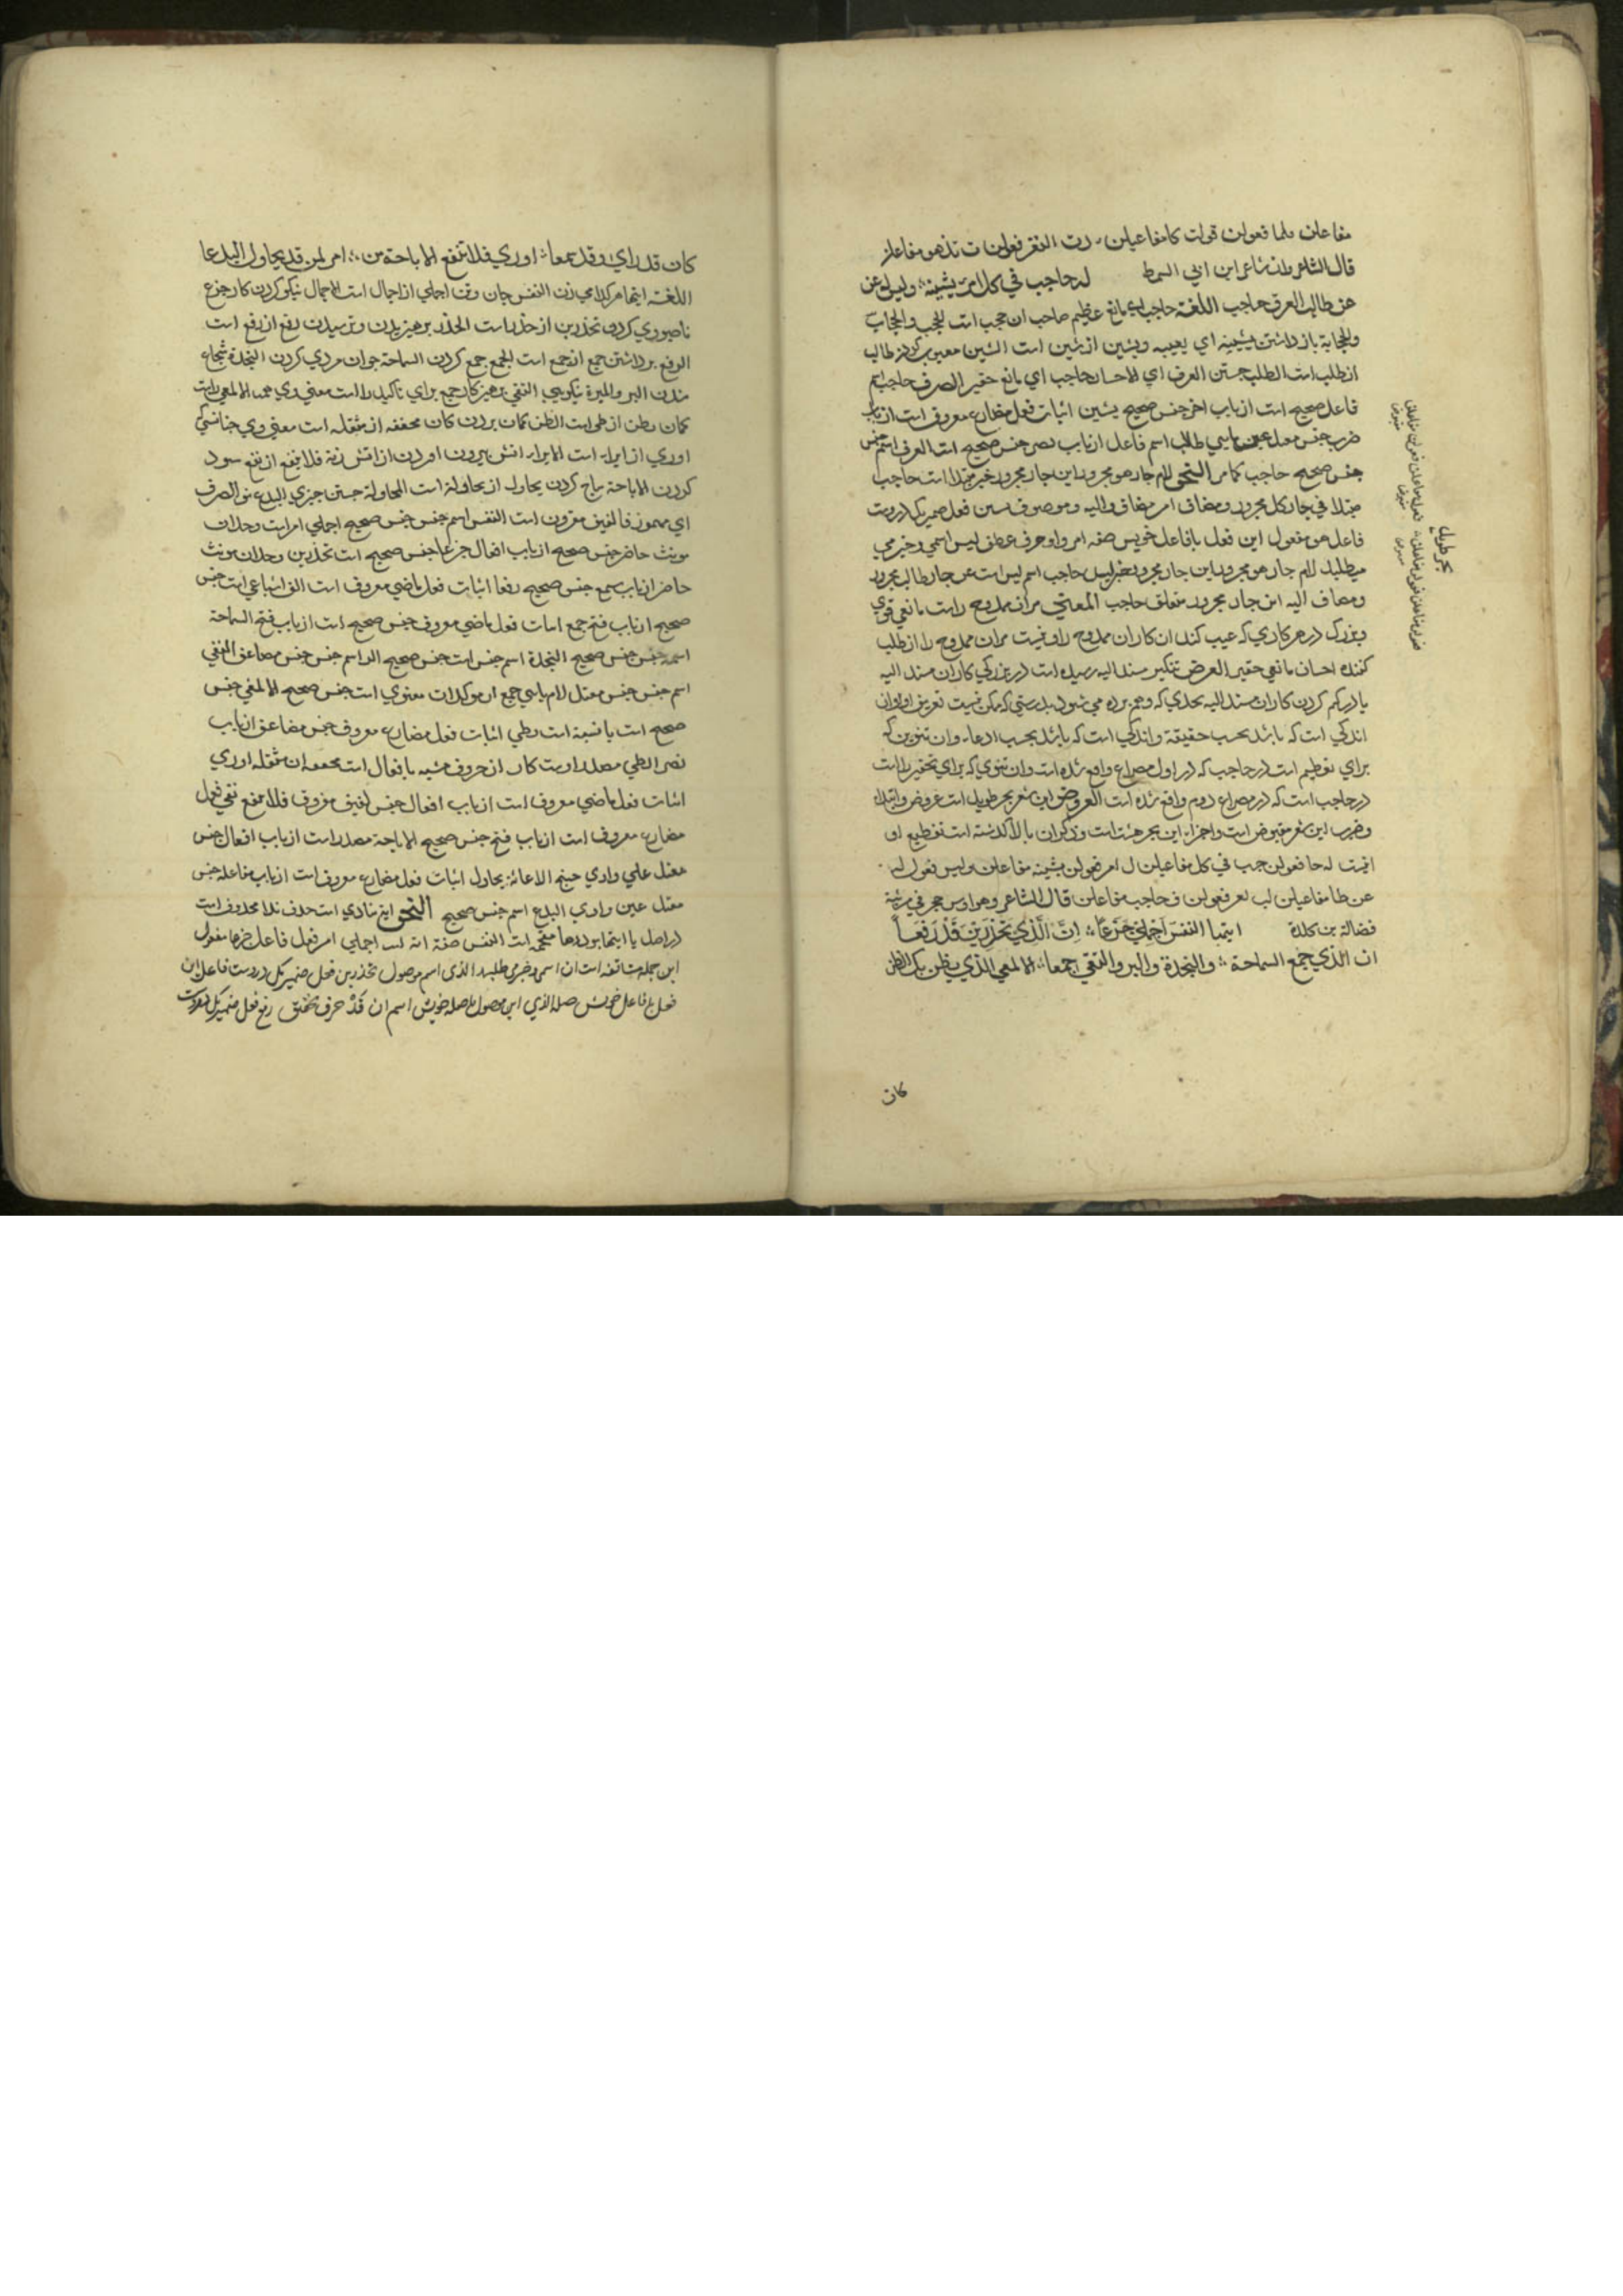 مفاعلن فلما فعولن قولت كامفاعيلن رت الفقر فعولن ت تذهو مفاعلن
قال الشاعر وان شاعر ابن ابي السمط له حاجب في كل امر يشينه وليس له عن
عن طالب العرف حاجب اللغة حاجب اي مانع عظيم صاحب ان حجب است الحجب والحجاب
والحجابة باز داشتن يشينه اي يعيبه ويشين از شين است الشين معيوب كردن طالب
از طلب است الطلب جستن العرف اي الاحسان حاجب اي مانع حقير الصرف حاجب اسم
فاعل صحيح است از باب اخر جنس صحيح يشين اثبات فعل مضارع معروف است از باب
ضرب جنس معتل عين يايي طالب اسم فاعل از باب نصر جنس صحيح است العرف اسم جنس
جنس صحيح حاجب كما مر النحو لام جار هو مجرور اين جار مجرور خبر مبتدا است حاجب
مبتدا في جار كل مجرور ومضاف امر مضاف واليه وموصوف يشين فعل ضمير يك دروست
فاعل هو مفعول اين فعل بافاعل خويش صفه امر واو حرف عطف ليس اسمي وخبر مي
ميطلبد لام جار هو مجرور اين جار مجرور خبر ليس حاجب اسم ليس است عن جار طالب مجرور
ومضاف اليه اين جار مجرور متعلق حاجب المعني مر ان ممدوح راست مانعي قوي
وبزرك در هر كاري كه عيب كند ان كار ان ممدوح را ونيست مر ان ممدوح را از طلب
كننده احسان مانعي حقير العرض تنكير مسند اليه رسيده است در بزركي كار ان مسند اليه
يا در كم كردن كار ان مسند اليه بحدي كه وهم برده مي شود بدرستي كه ممكن نيست تعريف او وان
اندكي است كه باشد بحسب حقيقة واندكي است كه باشد بحسب ادعاء وان تنوين كه
براي تعظيم است در حاجب كه در اول مصراع واقع شده است وان تنوي كه براي تحقير را است
در حاجب است كه در مصراع دوم واقع شده است العروض اين شعر بحر طويل است عروض وابتداء
وضرب اين شعر مقبوض است واجزاء اين بحر هشت است وذكر ان بالا كذشته است تقطيع او
اينست له حا فعولن جب في كل مفاعيلن ل امر فعولن يشينه مفاعلن وليس فعول له
عن طا مفاعيلن لب لعر فعولن ف حاجب مفاعلن قال الشاعر وهو اوس حجر في مرثية
فضالة بن كلدة ايتها النفس اجملي جزعا ان الذي تحذرين قد رفعا
ان الذي جمع السماحة والنجدة والبر والتقى جمعا الالمعي الذي يظن بك الظن
كان
بحر طويل
فعولن مفاعلن فعولن مفاعلن
مقبوض
كان قد راي وقد سمعا اوري فلا تنفع الاباحة من امر لمن قد يحاول البدعا
اللغة ايتها مركلامي زن النفس جان وتن اجملي از اجمال است الاجمال نيكو كردن كار جزع
ناصبوري كردن تحذرين از حذر است الحذر برهيزيدن وترسيدن رفع از رفع است
الرفع برداشتن جمع از جمع است الجمع جمع كردن السماحة جوان مردي كردن النجدة شجاع
شدن البر والمبرة نيكويي التقي برهيزكار جمع براي تاكيد را است
كمان يظن از ظن است الظن كمان بردن كان مخففه از مثقله است معني وي چنانستي كه
اوري از ايراء است الايراء اتش بيرون اوردن از اتش زنه فلا ينفع از نفع سود
كردن الاباحة مباح كردن يحاول از محاولة است المحاولة جستن چيزي البدع نو الصرف
اي مهموز فا لفيف مقرون است النفس اسم جنس جنس صحيح اجملي امر است وحدان
مونث حاضر جنس صحيح از باب افعال جزعا جنس صحيح است تحذرين وحدان مونث
حاضر از باب سمع جنس صحيح رفعا اثبات فعل ماضي معروف است الف اشباعي است جنس
صحيح از باب فتح جمع اثبات فعل ماضي معروف جنس صحيح است از باب فتح السماحة
اسم جنس جنس صحيح النجدة اسم جنس است جنس صحيح البر اسم جنس جنس مضاعف التقي
اسم جنس جنس معتل لام يايي جمع از موكدات معنوي است جنس صحيح الالمعي جنس
صحيح است با نسبة است يظن اثبات فعل مضارع معروف جنس مضاعف از باب
نصر الظن مصدر اوست كان از حروف مشبه بافعال است مخففه از مثقله اوري
اثبات فعل ماضي معروف است از باب افعال جنس لفيف مفروق فلا تنفع نفي فعل
مضارع معروف است از باب فتح جنس صحيح الاباحة مصدر است از باب افعال جنس
معتل عين واوي يحاول اثبات فعل مضارع معروف است از باب مفاعله جنس
معتل عين واوي البدع اسم جنس صحيح النحو اية منادي است حرف ندا محذوف است
در اصل يا ايتها بود ها مقحمه است النفس صفة اية است اجملي امر فعل فاعل جزعا مفعول
اين جمله مستانفه است ان اسمي وخبري طلبد الذي اسم موصول تحذرين فعل ضمير يك دروست فاعل اين
فعل بافاعل خويش صله الذي اين موصول باصله خويش اسم ان قد حرف تحقيق رفع فعل ضمير يك دروست